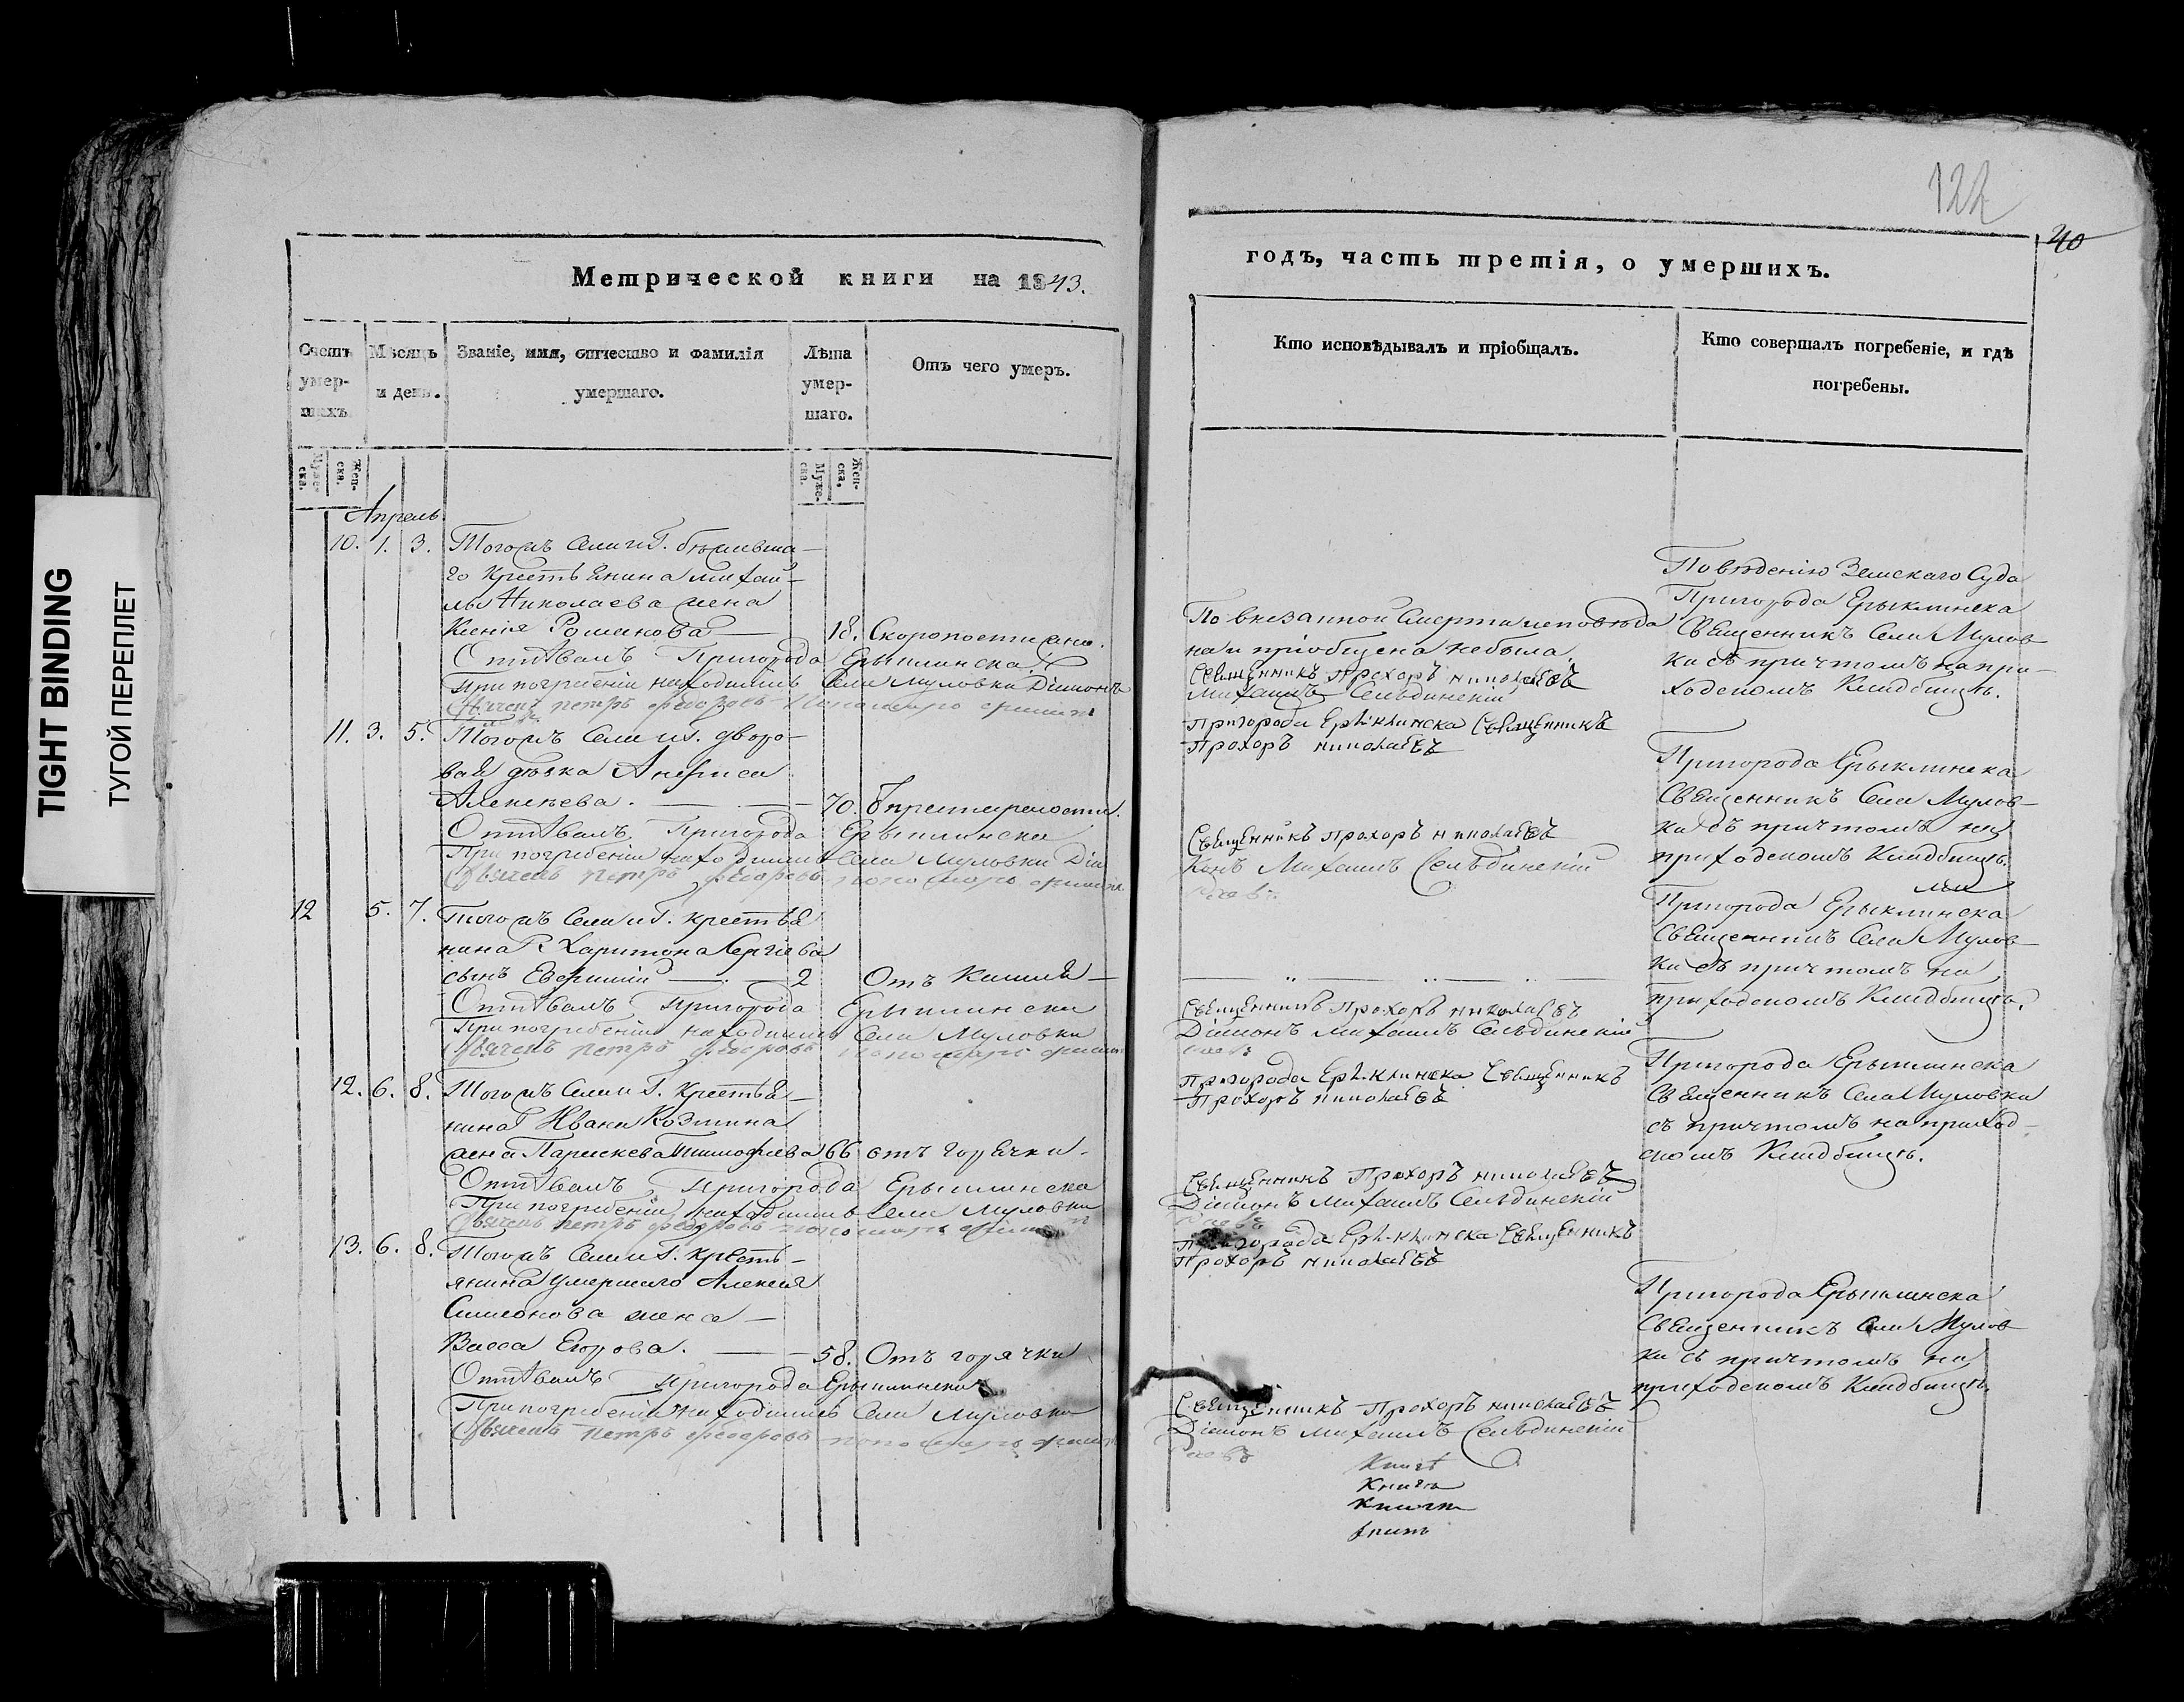 TIGHT BINDING
ТУГОЙ ПЕРЕПЛЕТ
Метрической книги на 1843.
Счетъ умер-шихъ.
Мѣсяцъ и день.
Званіе, имя, отчество и фамилія умершаго.
Лѣта умер-шаго.
Отъ чего умеръ.
Муже-ска.
Жен-ска.
Муже-ска.
Жен-ска.
Апрель
10. 1. 3. Тогожъ Села и Г.
го Крестьянина Михаи-
лы Николаева жена
Ксенія Романова 18. Скоропостижно.
Отпѣвалъ Пригорода Ерыклинска
При погребеніи находились Села Муловки Діаконъ
Петръ Федоровъ Пономарь
11. 3. 5. Тогожъ Села и Г. дворо-
вая дѣвка Анфиса
Алексѣева. 70. Отъ престарелости.
Отпѣвалъ Пригорода Ерыклинска
При погребеніи находились Села Муловки Діа
Петръ Федоровъ Пономарь
12 5. 7. Тогожъ Села и Г. крестья
нина Харитона Сергѣева
сынъ Евфимій 2 Отъ Кашля
Отпѣвалъ Пригорода Ерыклинска
При погребеніи находились Села Муловки
Петръ Федоровъ Пономарь
12. 6. 8. Тогожъ Села и Г. Крестья-
нина Ивана Козмина
жена Параскева Тимофѣева 66 отъ горячки.
Отпѣвалъ Пригорода Ерыклинска
При погребеніи находились Села Муловки
Петръ Федоровъ Пономарь
13. 6. 8. Тогожъ Села и Г. Кресть-
янина умершаго Алексія
Симионова жена
Васса Егорова. 58. Отъ горячки
Отпѣвалъ Пригорода Ерыклинска
При погребеніи находились Села Муловки
Петръ Федоровъ Пономарь
122
40
годъ, часть третія, о умершихъ.
Кто исповѣдывалъ и пріобщалъ.
Кто совершалъ погребеніе, и гдѣ погребены.
По внезапной Смерти исповѣда
на и пріобщена небыла.
Священникъ Прохоръ Николаевъ
Михаилъ Сельдинскій
Пригорода Ерыклинска Священникъ
Прохоръ Николаевъ
Священникъ Прохоръ Николаевъ
Конъ Михаилъ Сельдинскій
Священникъ Прохоръ Николаевъ
Діаконъ Михаилъ Сельдинскій
Пригорода Ерыклинска Священникъ
Прохоръ Николаевъ
Священникъ Прохоръ Николаевъ
Діаконъ Михаилъ Сельдинскій
Пригорода Ерыклинска Священникъ
Прохоръ Николаевъ
Священникъ Прохоръ Николаевъ
Діаконъ Михаилъ Сельдинскій
По вѣденію Земскаго Суда
Пригорода Ерыклинска
Священникъ Села Мулов
ки съ причтомъ на при-
ходскомъ Кладбищѣ.
Пригорода Ерыклинска
Священникъ Села Мулов-
ки съ причтомъ на
приходскомъ Кладбищѣ.
Пригорода Ерыклинска
Священникъ Села Мулов-
ки съ причтомъ на
приходскомъ Кладбищѣ.
Пригорода Ерыклинска
Священникъ Села Муловки
съ причтомъ на приход-
скомъ Кладбищѣ.
Пригорода Ерыклинска
Священникъ Села Мулов
ки съ причтомъ на
приходскомъ Кладбищѣ.